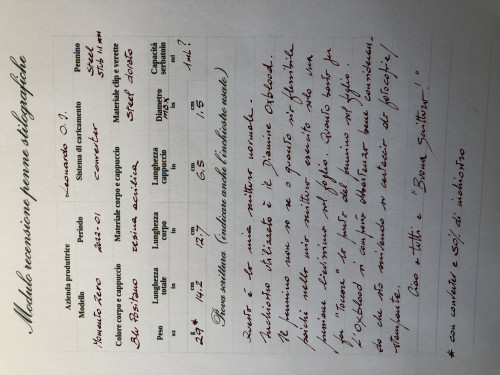 Modulo recensione penne stilografiche
Azienda produttrice
Leonardo O.I.
Modello Periodo Sistema di caricamento Pennino
Momento Zero 2022-01 converter Steel
Stub 1.1 mm
Colore corpo e cappuccio Materiale corpo e cappuccio Materiale clip e verette
Blu Positano resina acrilica Steel dorato
Peso Lunghezza totale Lunghezza corpo Lunghezza cappuccio Diametro max Capacità serbatoio
oz g in cm in cm in cm in cm ml
29* 14.2 12.7 6.5 1.5 1 ml?
Prova scrittura (indicare anche l'inchiostro usato)
Questo è la mia scrittura normale.
Inchiostro utilizzato è il Diamine Oxblood.
Il pennino non so se e quanto sia flessibile
poiché nella mia scrittura esercito solo una
pressione lievissima sul foglio. Questo tanto fa
"la punta del pennino sul foglio.
L'Oxblood si comporta abbastanza bene consideran-
do che sto scrivendo su cartaccia da fotocopie/
stampante.
Ciao a tutti e "Buona scrittura!"
* con converter e 50% di inchiostro